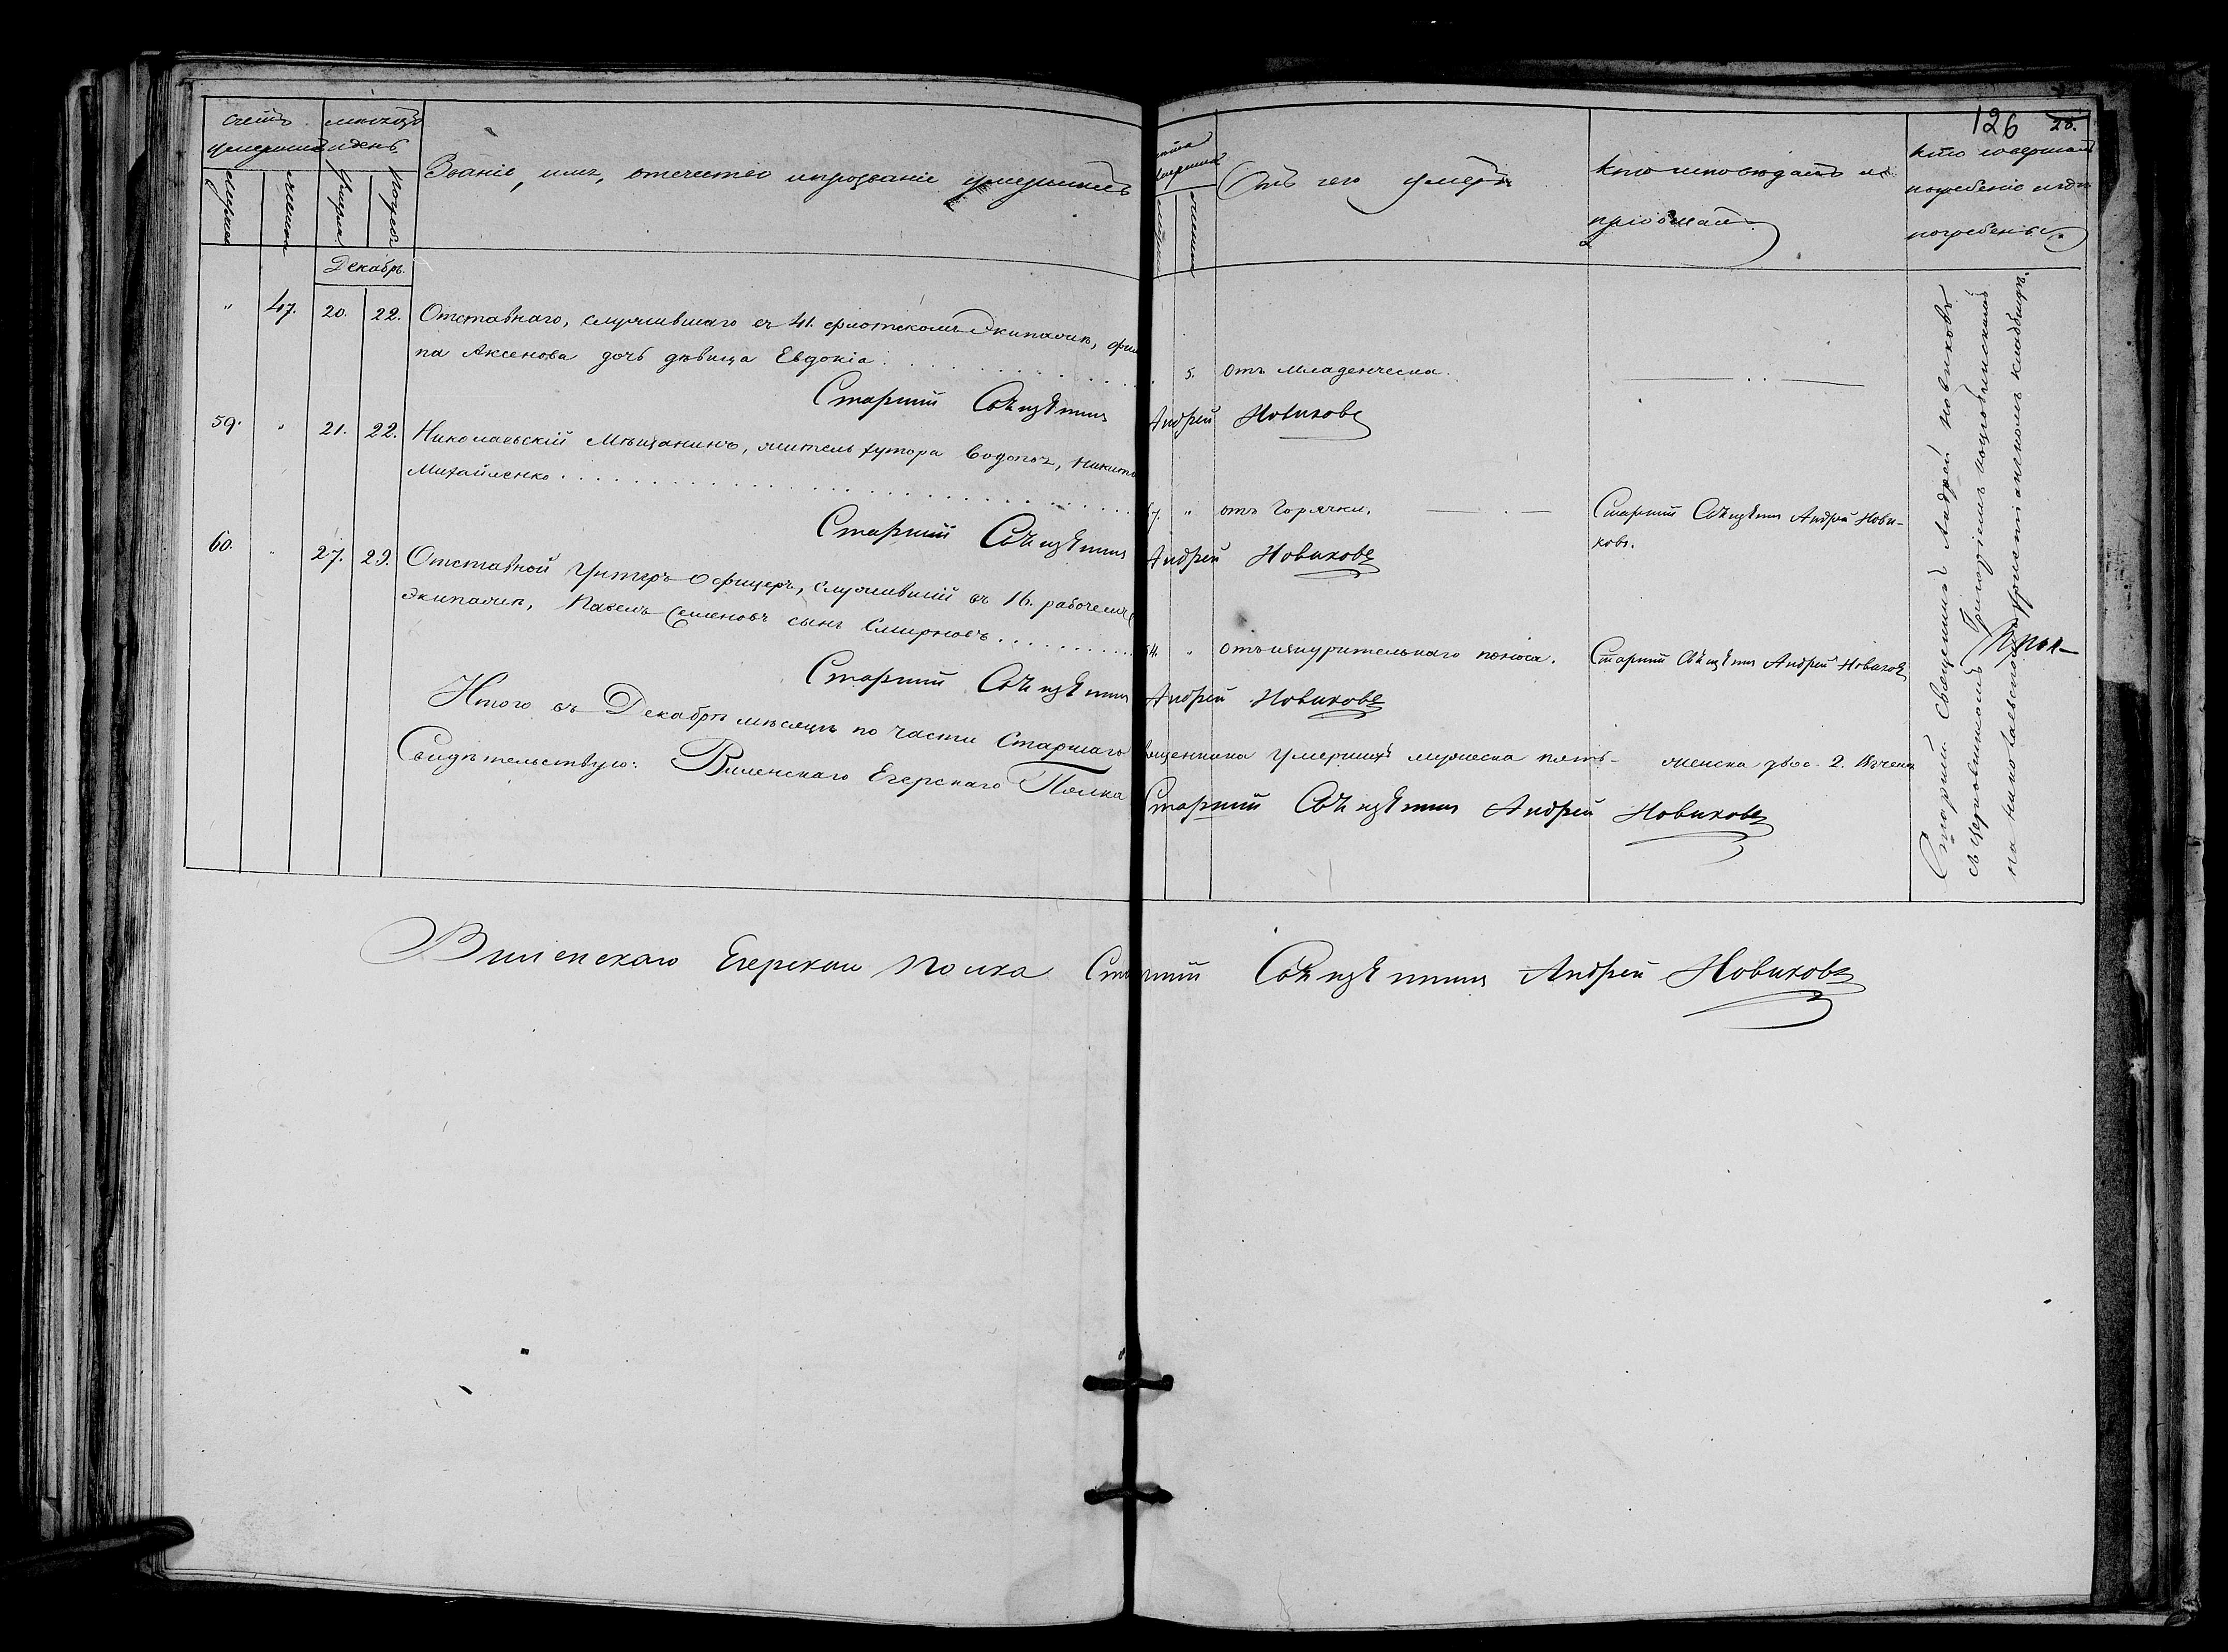 126 28.
Счетъ
умершихъ
мѣсяцъ
и день
мужеска
женска
умерш.
погреб.
Званіе, имя, отечество и прозваніе умершихъ
лѣта
умершихъ
Отъ чего умеръ
Кто исповѣдалъ и
пріобщалъ.
Кто совершалъ
погребеніе и гдѣ
погребены.
Декабрь.
" 47. 20. 22. Отставнаго, служившаго въ 41. флотскомъ Экипажѣ, Фили
па Аксенова дочь дѣвица Евдокія. 5. отъ младенческа.
Старшій Священникъ Андрей Новиковъ
59. " 21. 22. Николаевскій Мѣщанинъ, житель хутора Водопоя, Никита
Михайленко 7. " отъ горячки. Старшій Священникъ Андрей Нови-
ковъ.
Старшій Священникъ Андрей Новиковъ
60. " 27. 29. Отставной Унтеръ-Офицеръ, служившій въ 16. рабочемъ
экипажѣ, Павелъ Семеновъ сынъ Смирновъ 54. " отъ изнурительнаго поноса. Старшій Священникъ Андрей Новиковъ
Старшій Священникъ Андрей Новиковъ
Итого въ Декабрѣ мѣсяцѣ по части Старшаго Священника умершихъ мужеска пять- женска двое 2.
Свидѣтельствую: Виленскаго Егерскаго Полка Старшій Священникъ Андрей Новиковъ
Старшій Священникъ Андрей Новиковъ
съ церковникомъ Григоріемъ
на Николаевскомъ христіанскомъ кладбищѣ.
Виленскаго Егерскаго Полка Старшій Священникъ Андрей Новиковъ